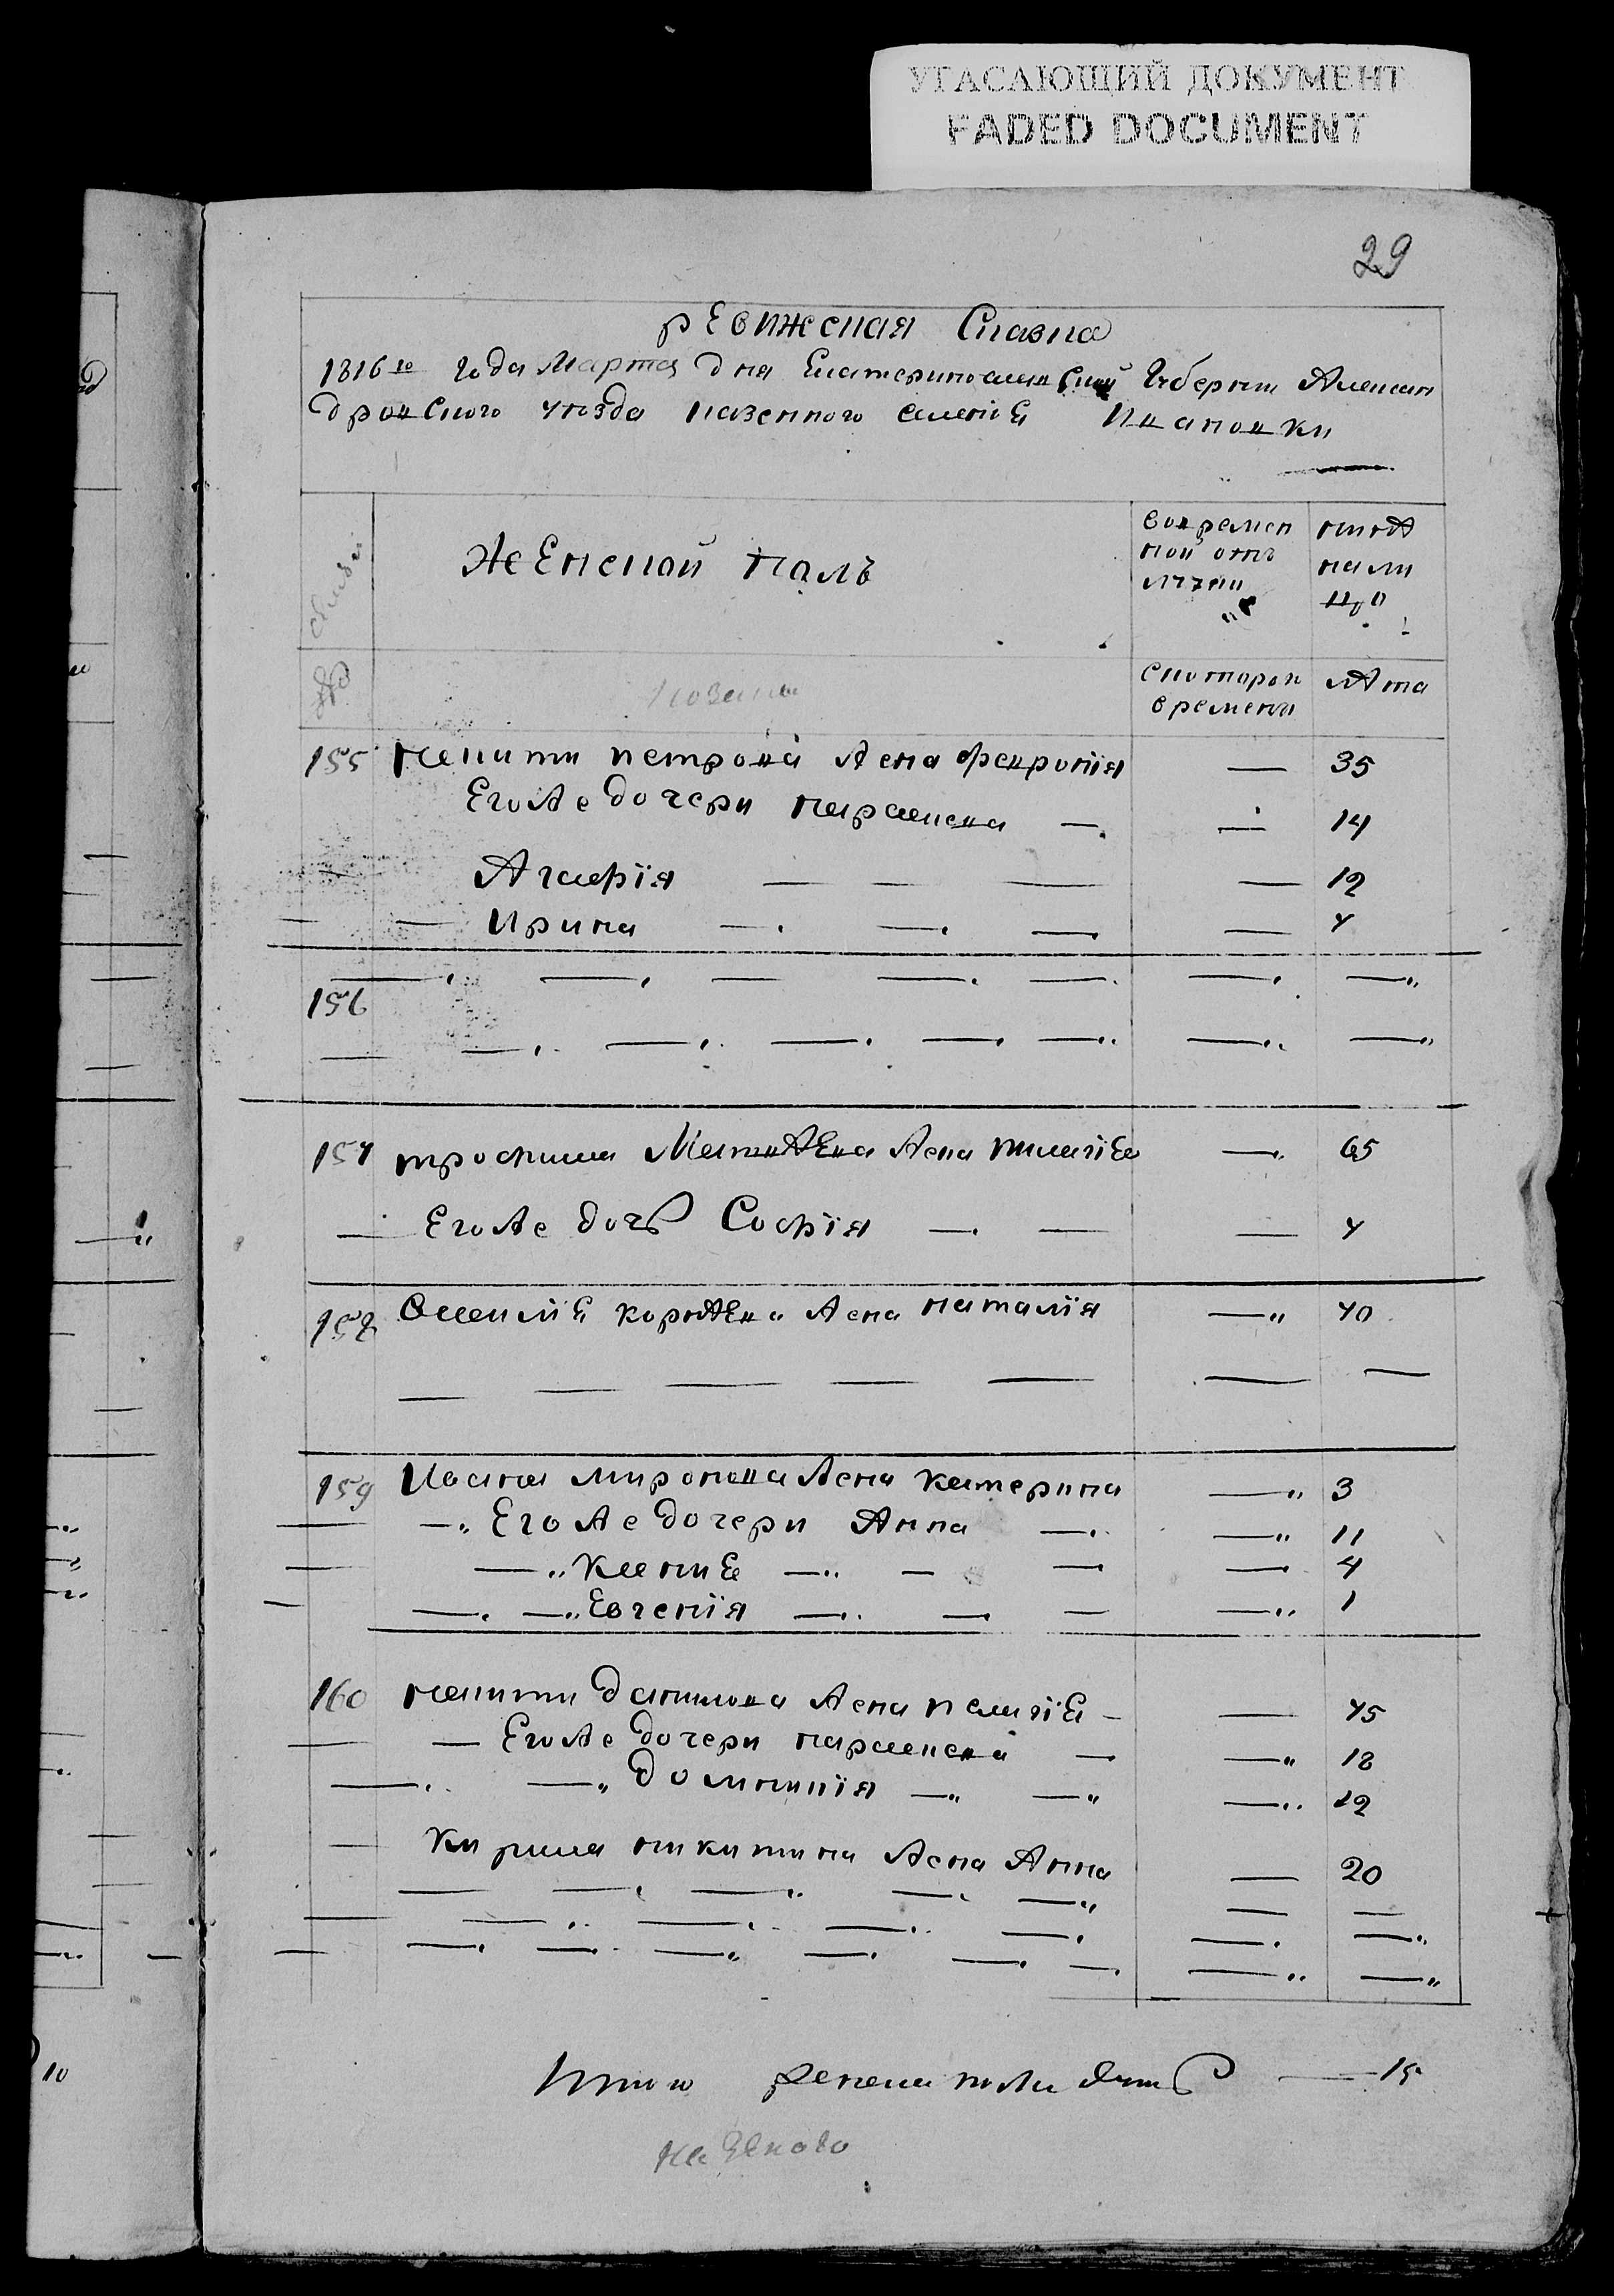 УГАСАЮЩИЙ ДОКУМЕНТ
FADED DOCUMENT
29
ревижская Сказка
1816го года Марта дня Екатеринославской Губернии Алексан
дровского уезда казенного селения Ивановки
Женской полъ
во времен
ной отъ
лучки
ныне
на ли
цо
с которого
времени
Лета
155 никити петрова жена феврония — 35
Его же дочери параскева — 14
Агафïя — 12
Ирина — 4
156
157 трофима Матвеева жена пилагïе — 65
Его же дочь София — 4
158 Василïе корнеева жена наталïя — 40
159 Ивана миронова жена катерина — 3
Его же дочери Анна — 11
Ксение — 4
Евгенïя — 1
160 никити данилова жена пелагïе — 45
Его же дочери параскева — 18
домникïя — 12
Кирила никитина жена Анна — 20
Итого женска пола душъ — 15